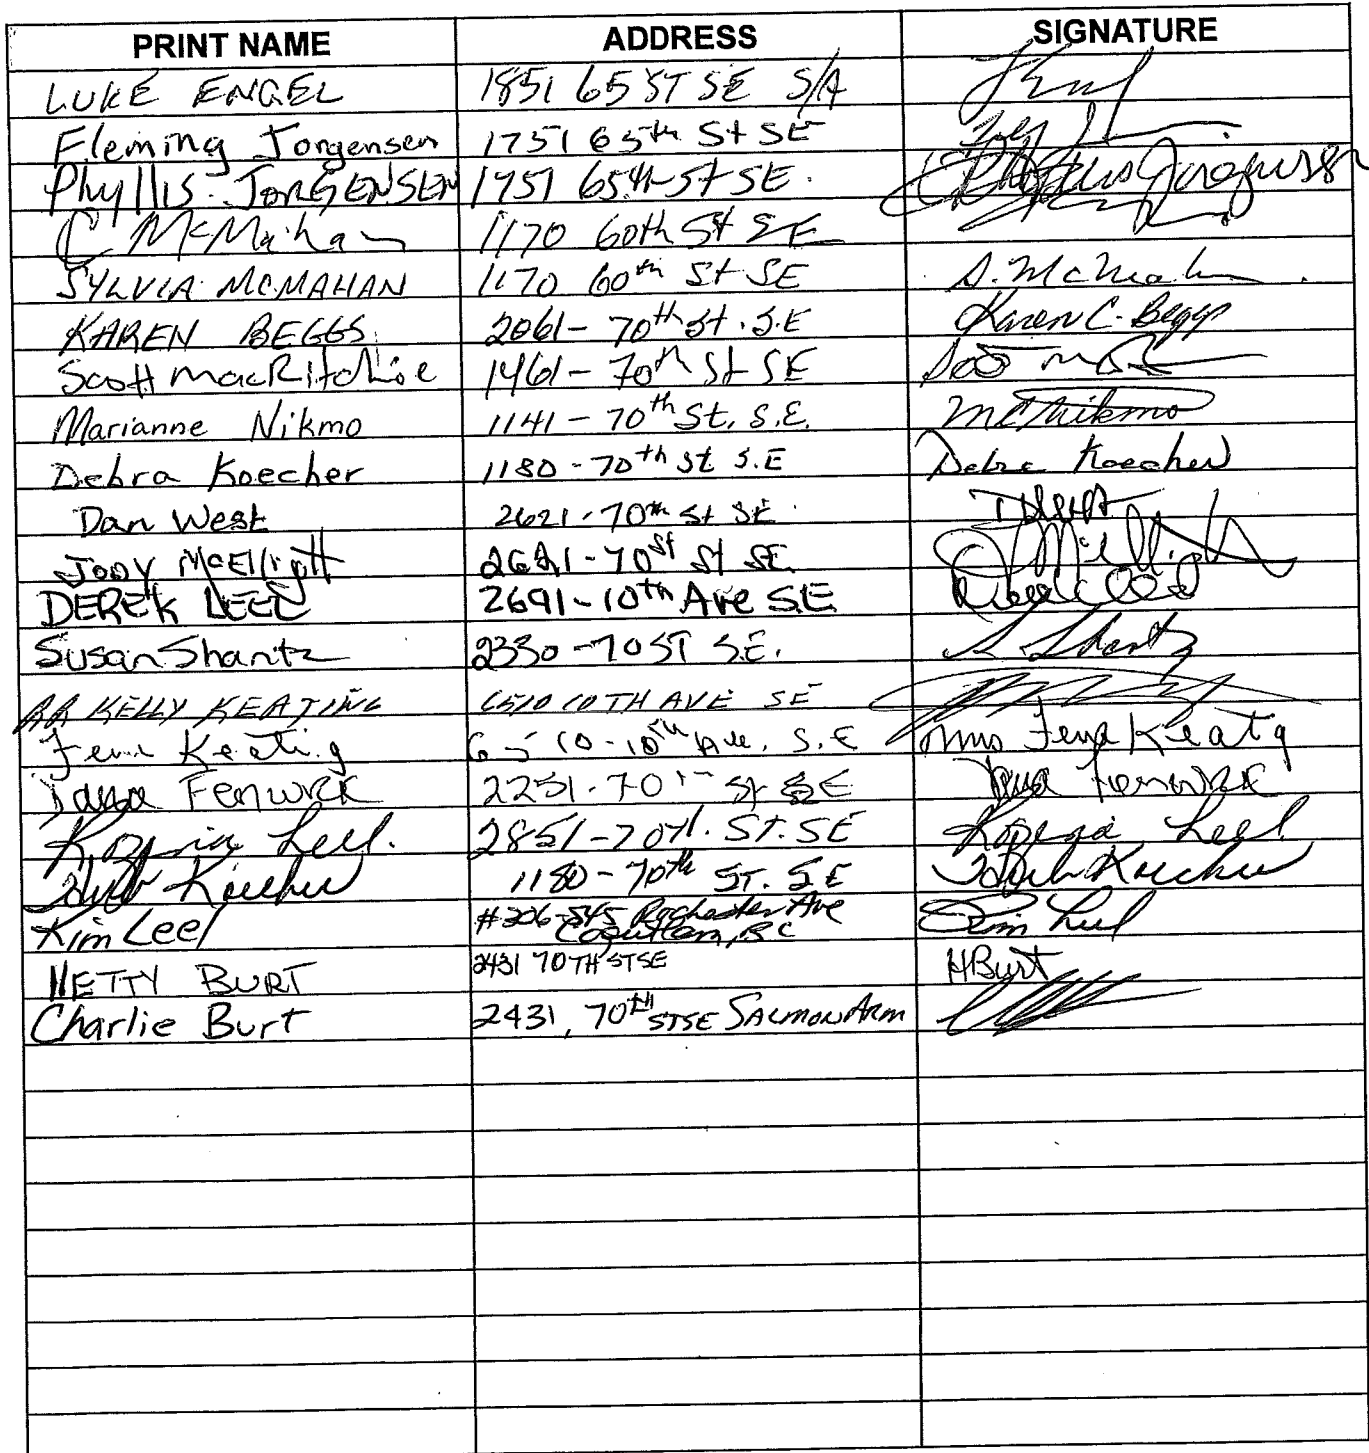 PRINT NAME ADDRESS SIGNATURE
LUKE ENGEL 1851 65 ST SE S/A
Fleming Jorgensen 1751 65th St SE
Phyllis JORGENSEN 1751 65th St SE. Phyllis Jorgensen
C McMahan 1170 60th St SE
SYLVIA MCMAHAN 1170 60th St SE S. McMahan
KAREN BEGGS 2061- 70th St. S.E Karen C. Beggs
Scott MacRitchie 1461- 70th St SE
Marianne Nikmo 1141 - 70th St. S.E. M C Nikmo
Debra Koecher 1180 - 70th St S.E Debra Koecher
Dan West 2621 - 70th St SE D West
JODY McElligott 2621 - 70 St SE.
DEREK LEEL 2691-10th Ave SE
Susan Shantz 2330 - 70 ST S.E. S Shantz
KELLY KEATING 6510 10TH AVE SE
Keating 6510-10th Ave. S.E Mrs Keating
Fenwick 2251-70 St SE Fenwick
Leel. 2851-70th. ST. SE Leel
Koecher 1180-70th ST. SE Koecher
Kim Leel #306-545 Rochester Ave Kim Leel
Coquitlam, BC
HETTY BURT 2431 70TH ST SE H Burt
Charlie Burt 2431, 70th ST SE SALMON ARM